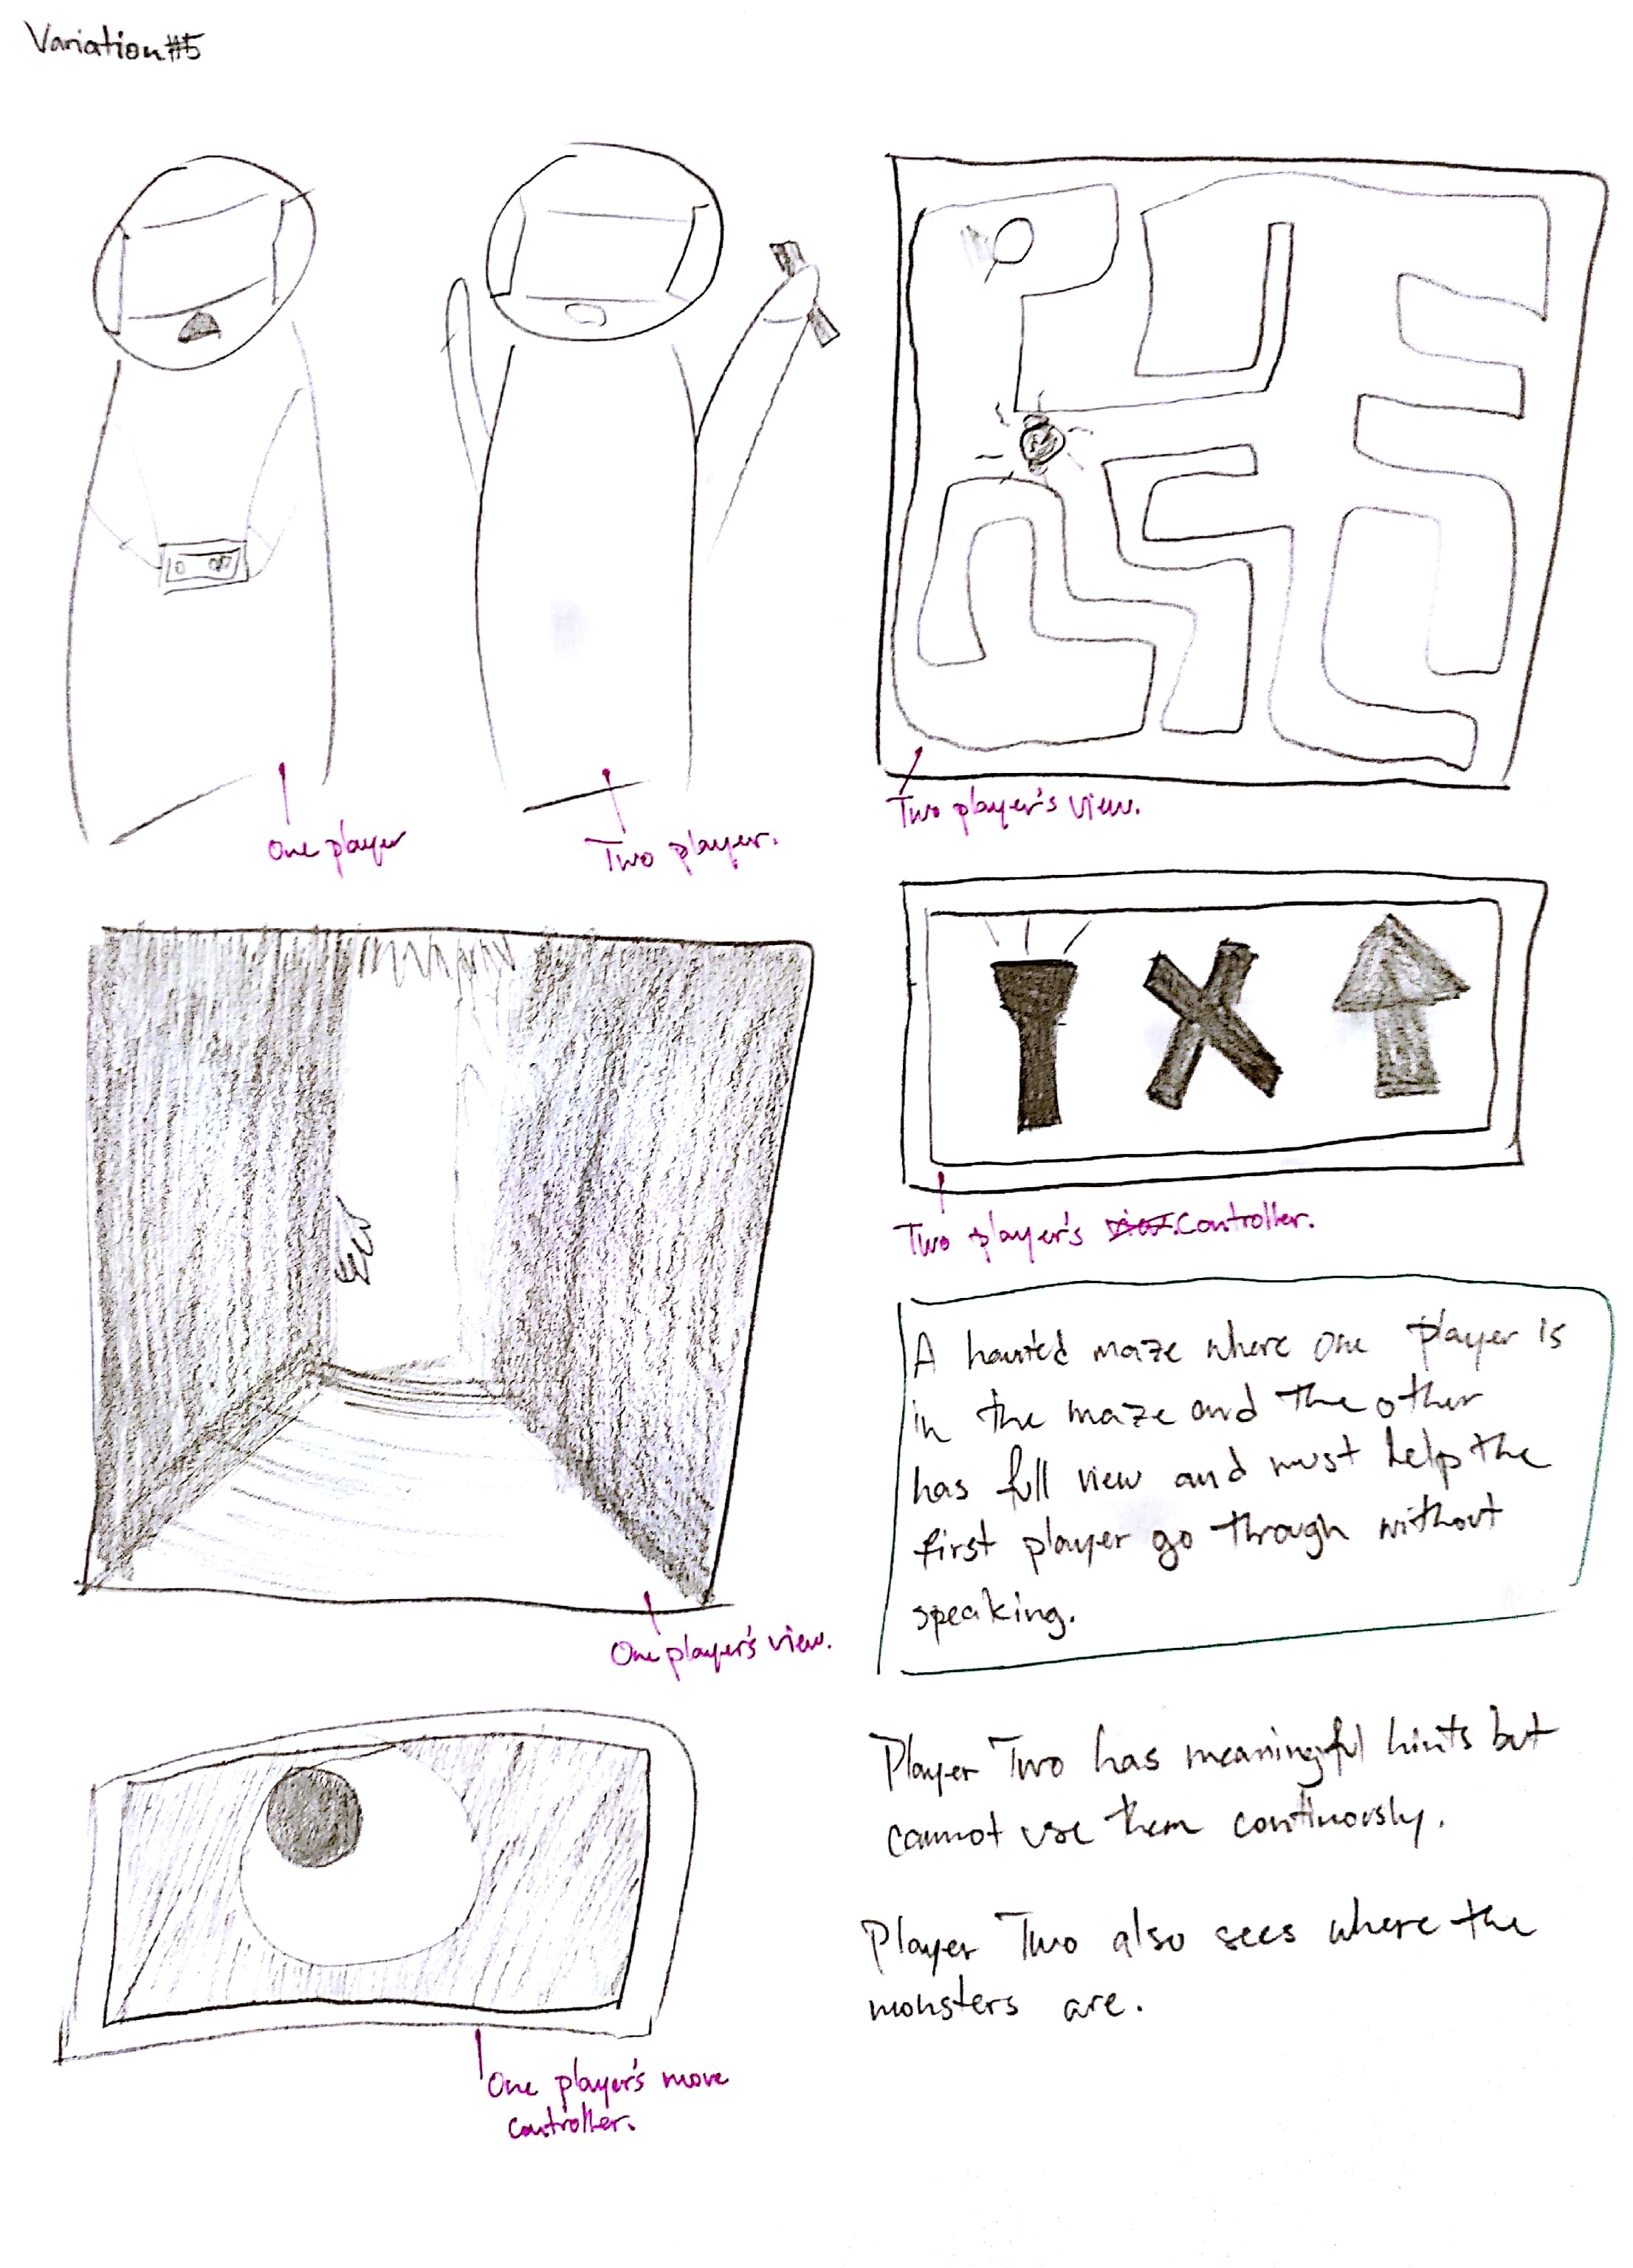 Variation #5
One player
Two player.
Two player's view.
Two player's view. Controller.
One player's view.
A haunted maze where one player is
in the maze and the other
has full view and must help the
first player go through without
speaking.
Player Two has meaningful hints but
cannot use them continuously.
Player Two also sees where the
monsters are.
One player's move
controller.